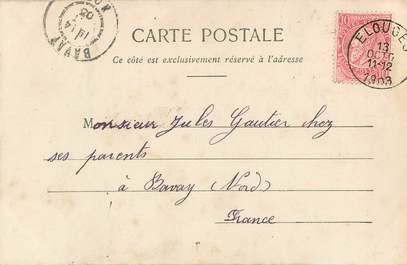 CARTE POSTALE
Ce côté est exclusivement réservé à l'adresse
BAVAY
10
10
ELOUGES
13
OCTO
11-12
1903
Monsieur Jules Gautier chez
ses parents
à Bavay (Nord)
France